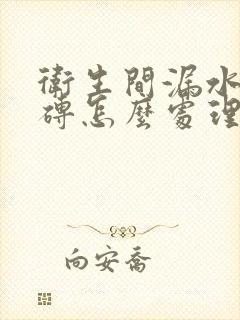 衛生間漏水
磚怎麼處理
向安喬